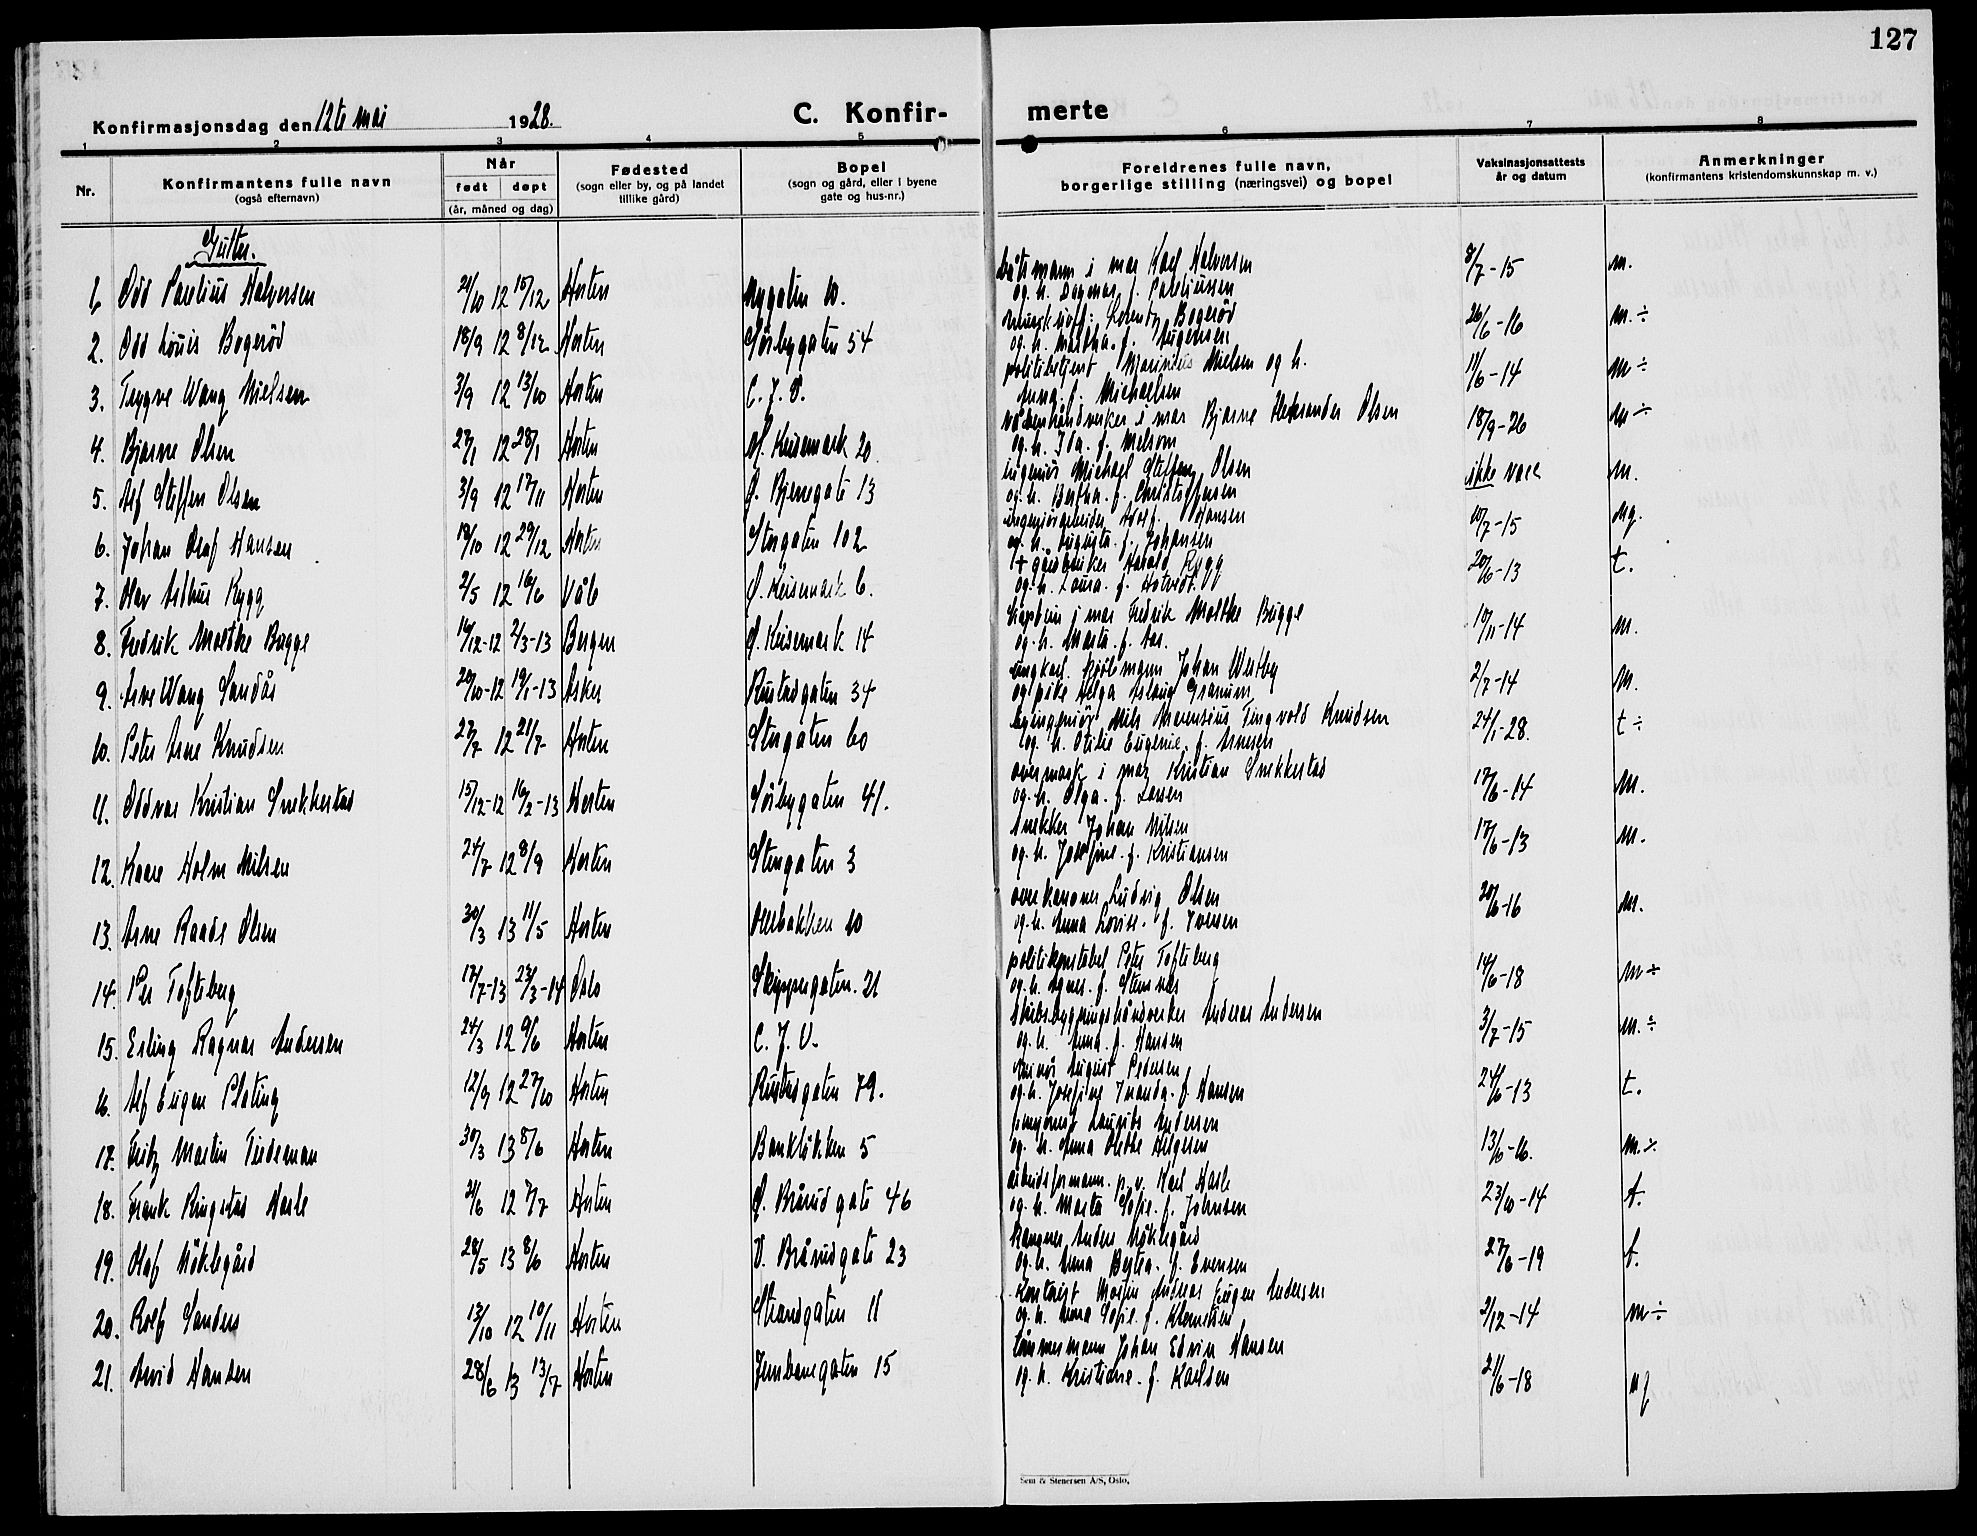 127
Konfirmasjonsdag den 12te mai 1928.
C. Konfir-
merte
1 2 3 4 5 6 7 8
Nr.
Konfirmantens fulle navn
(også efternavn)
Når
født døpt
(år, måned og dag)
Fødested
(sogn eller by, og på landet
tillike gård)
Bopel
(sogn og gård, eller i byene
gate og hus-nr.)
Foreldrenes fulle navn,
borgerlige stilling (næringsvei) og bopel
Vaksinasjonsattests
år og datum
Anmerkninger
(konfirmantens kristendomskunnskap m. v.)
Gutter.
1. Odd Paulius Halvorsen 21/10 12 15/12 Horten Nygaten 10. båtsmann i mar Karl Halvorsen 8/7-15 m.
og h. Dagmar f. Pauliussen
2. Odd Louis Bogerød 18/9 12 8/12 Horten Sørbygaten 54 Lorentz Bogerød 26/6-16 m.÷
og h. Martha. f. Jugensen
3. Trygve Wang Nielsen 3/9 12 13/10 Horten C. J. V. politibetjent Nielsen og h. 11/6-14 m÷
Anna. f. Michaelsen
4. Bjarne Olsen 27/1 12 28/1 Horten N. Keisemark 20 våbenhåndverker i mar Bjarne Aleksander Olsen 18/9-26 m÷
og h. Ida. f. Melsom
5. Alf Steffen Olsen 3/9 12 17/11 Horten Ø. Bjerregate 13 ingeniør Michael Steffen Olsen ikke vacc m.
og h. Bertha. f. Christoffersen
6. Johan Olaf Hansen 18/10 12 29/12 Horten Storgaten 102 Adolf Hansen 10/7-15 mg.
og h. Augusta. f. Johansen
7. Olav Arthur Rygg 2/5 12 16/6 Våle Ø. Keisemark 6. + gårdbruker Harald Rygg 20/6-13 t.
og h. Laura. f. Hotvedt.
8. Fredrik Moltke Bugge 16/12-12 2/3-13 Bergen Ø. Keisemark 14 kaptein i mar Fredrik Moltke Bugge 10/11-14 m.
og h. Marta. f. Aas.
9. Arne Wang Sandås 20/10-12 19/1-13 Asker Rustadgaten 34 ungkarl. Johan Westby 2/7-14 m.
og pike Helga Aslaug Granum
10. Peter Arne Knudsen 27/7 12 21/7 Horten Storgaten 60 byingeniør Nils Marensius Tingvold Knudsen 24/1-28. t÷
og h. Otilie Eugenie. f. Arnesen
11. Oddvar Kristian Snekkestad 15/12-12 16/2-13 Horten Sørbygaten 41. overmask i mar Kristian Snekkestad 17/6-14 m.
og h. Olga. f. Larsen
12. Kaare Holm Nilsen 24/7 12 8/9 Horten Storgaten 3 snekker Johan Nilsen 17/6-13 m.
og h. Josefine. f. Kristiansen
13. Arne Raade Olsen 30/3 13 11/5 Horten Ollebakken 10 overkanoner Ludvig Olsen 20/6-16 m.
og h. Anna Lovise. f. Iversen
14. Per Tofteberg 17/7-13 23/3-14 Oslo Skippergaten. 21 politikonstabel Peter Tofteberg 14/6-18 m÷
og h. Agnes. f.
15. Erling Ragnar Andersen 24/3 12 9/6 Horten C. J. V. skibsbyggningshåndverker Andreas Andersen 3/7-15 m.÷
og h. Anna. f. Hansen
16. Alf Eugen Plating 12/9 12 27/10 Horten Rustadgaten 79. August Pedersen 24/6-13 t.
og h. Josefine f. Hansen
17. Fritz Martin Tiedeman 30/3 13 8/6 Horten Bankløkken 5 Laurits Andersen 13/6-16. m.÷
og h. Anna Helgesen
18. Frank Ringstad Hasle 2/6 12 7/7 Horten Ø. Brårudgate 46 arbeidsformann. p. v. Karl Hasle 23/10-14 t.
og h. Marta Sofie. f. Johnsen
19. Olaf Møklegård 28/5 13 8/6 Horten V. Brårudgate 23 Anders Møklegård 27/6-19 t.
og h. Anna Bertea. f. Evensen
20. Rolf Sanders 13/10 12 10/11 Horten Strandgaten 11 kontorist Martin Andreas Eugen Andersen 2/12-14 m÷
og h. Anna Sofie. f. Klemetsen
21. Arvid Hansen 28/6 13 13/7 Horten Jernbanegaten 15 tømmermann Johan Edvin Hansen 21/6-18 mg
og h. Kristiane. f. Karlsen
Sem & Stenersen A/S, Oslo.